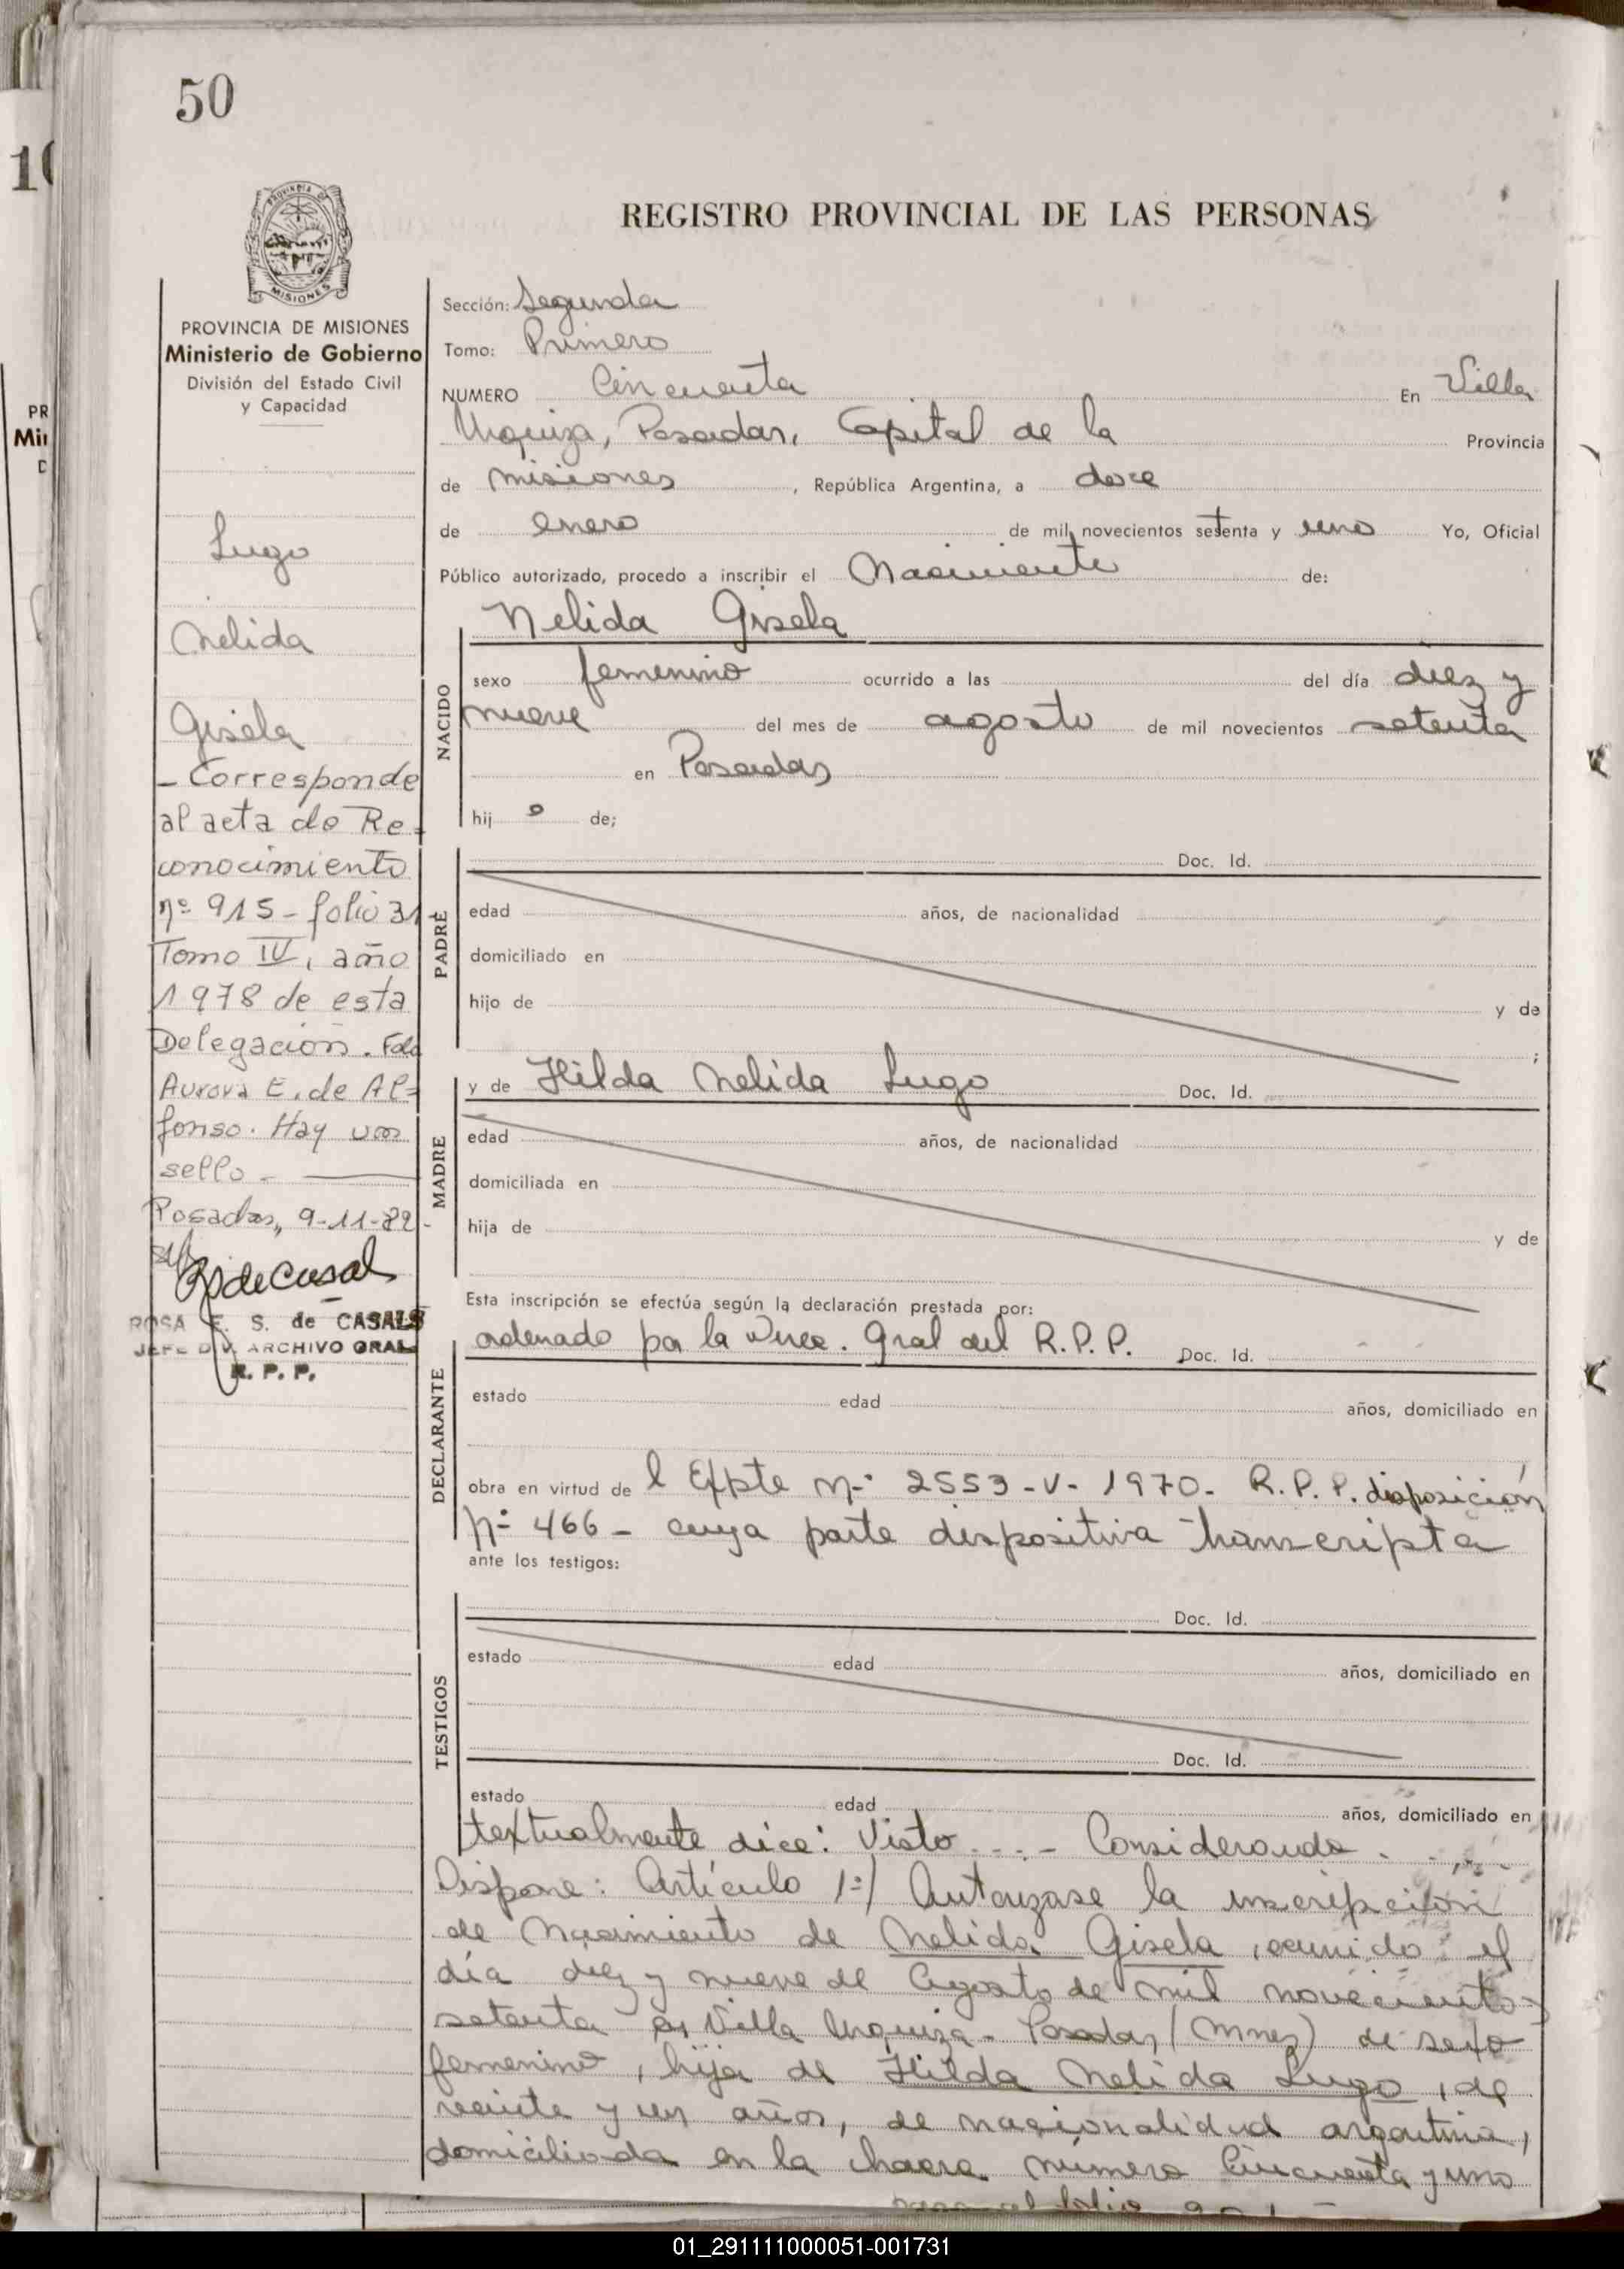 50
REGISTRO PROVINCIAL DE LAS PERSONAS
PROVINCIA DE MISIONES
Ministerio de Gobierno
División del Estado Civil
y Capacidad
Lugo
Nelida
Gisela
- Corresponde
al acta de Re-
conocimiento
nº 915 - folio 31
Tomo IV, año
1978 de esta
Delegación. Fdo
Aurora E. de Al-
fonso. Hay un
sello -
Posadas, 9-11-82-
RSdeCasals
ROSA E. S. de CASALS
JEFE DIV. ARCHIVO GRAL
R. P. P.
Sección: Segunda
Tomo: Primero
NUMERO Cincuenta En Villa
Urquiza, Posadas, Capital de la Provincia
de Misiones, República Argentina, a doce
de enero de mil novecientos setenta y uno Yo, Oficial
Público autorizado, procedo a inscribir el Nacimiento de:
Nelida Gisela
NACIDO
sexo femenino ocurrido a las del día diez y
nueve del mes de agosto de mil novecientos setenta
en Posadas
hij a de;
PADRE
Doc. Id.
edad años, de nacionalidad
domiciliado en
hijo de y de
;
MADRE
y de Hilda Nelida Lugo Doc. Id.
edad años, de nacionalidad
domiciliada en
hija de y de
Esta inscripción se efectúa según la declaración prestada por:
DECLARANTE
ordenado por la Direc. Gral del R.P.P. Doc. Id.
estado edad años, domiciliado en
obra en virtud de l Expte Nº 2553-V-1970- R.P.P. disposición
Nº 466 - cuya parte dispositiva transcripta
ante los testigos:
TESTIGOS
Doc. Id.
estado edad años, domiciliado en
Doc. Id.
estado edad años, domiciliado en
textualmente dice: Visto .... - Considerando ....
Dispone: Artículo 1º) Autorizase la inscripción
de Nacimiento de Nelida Gisela, ocurrido el
día diez y nueve de Agosto de mil novecientos
setenta en Villa Urquiza - Posadas, (Mnes) de sexo
femenino, hija de Hilda Nelida Lugo, de
veinte y un años, de nacionalidad argentina,
domiciliada en la chacra número Cincuenta y uno
pasa al folio
01_291111000051-001731